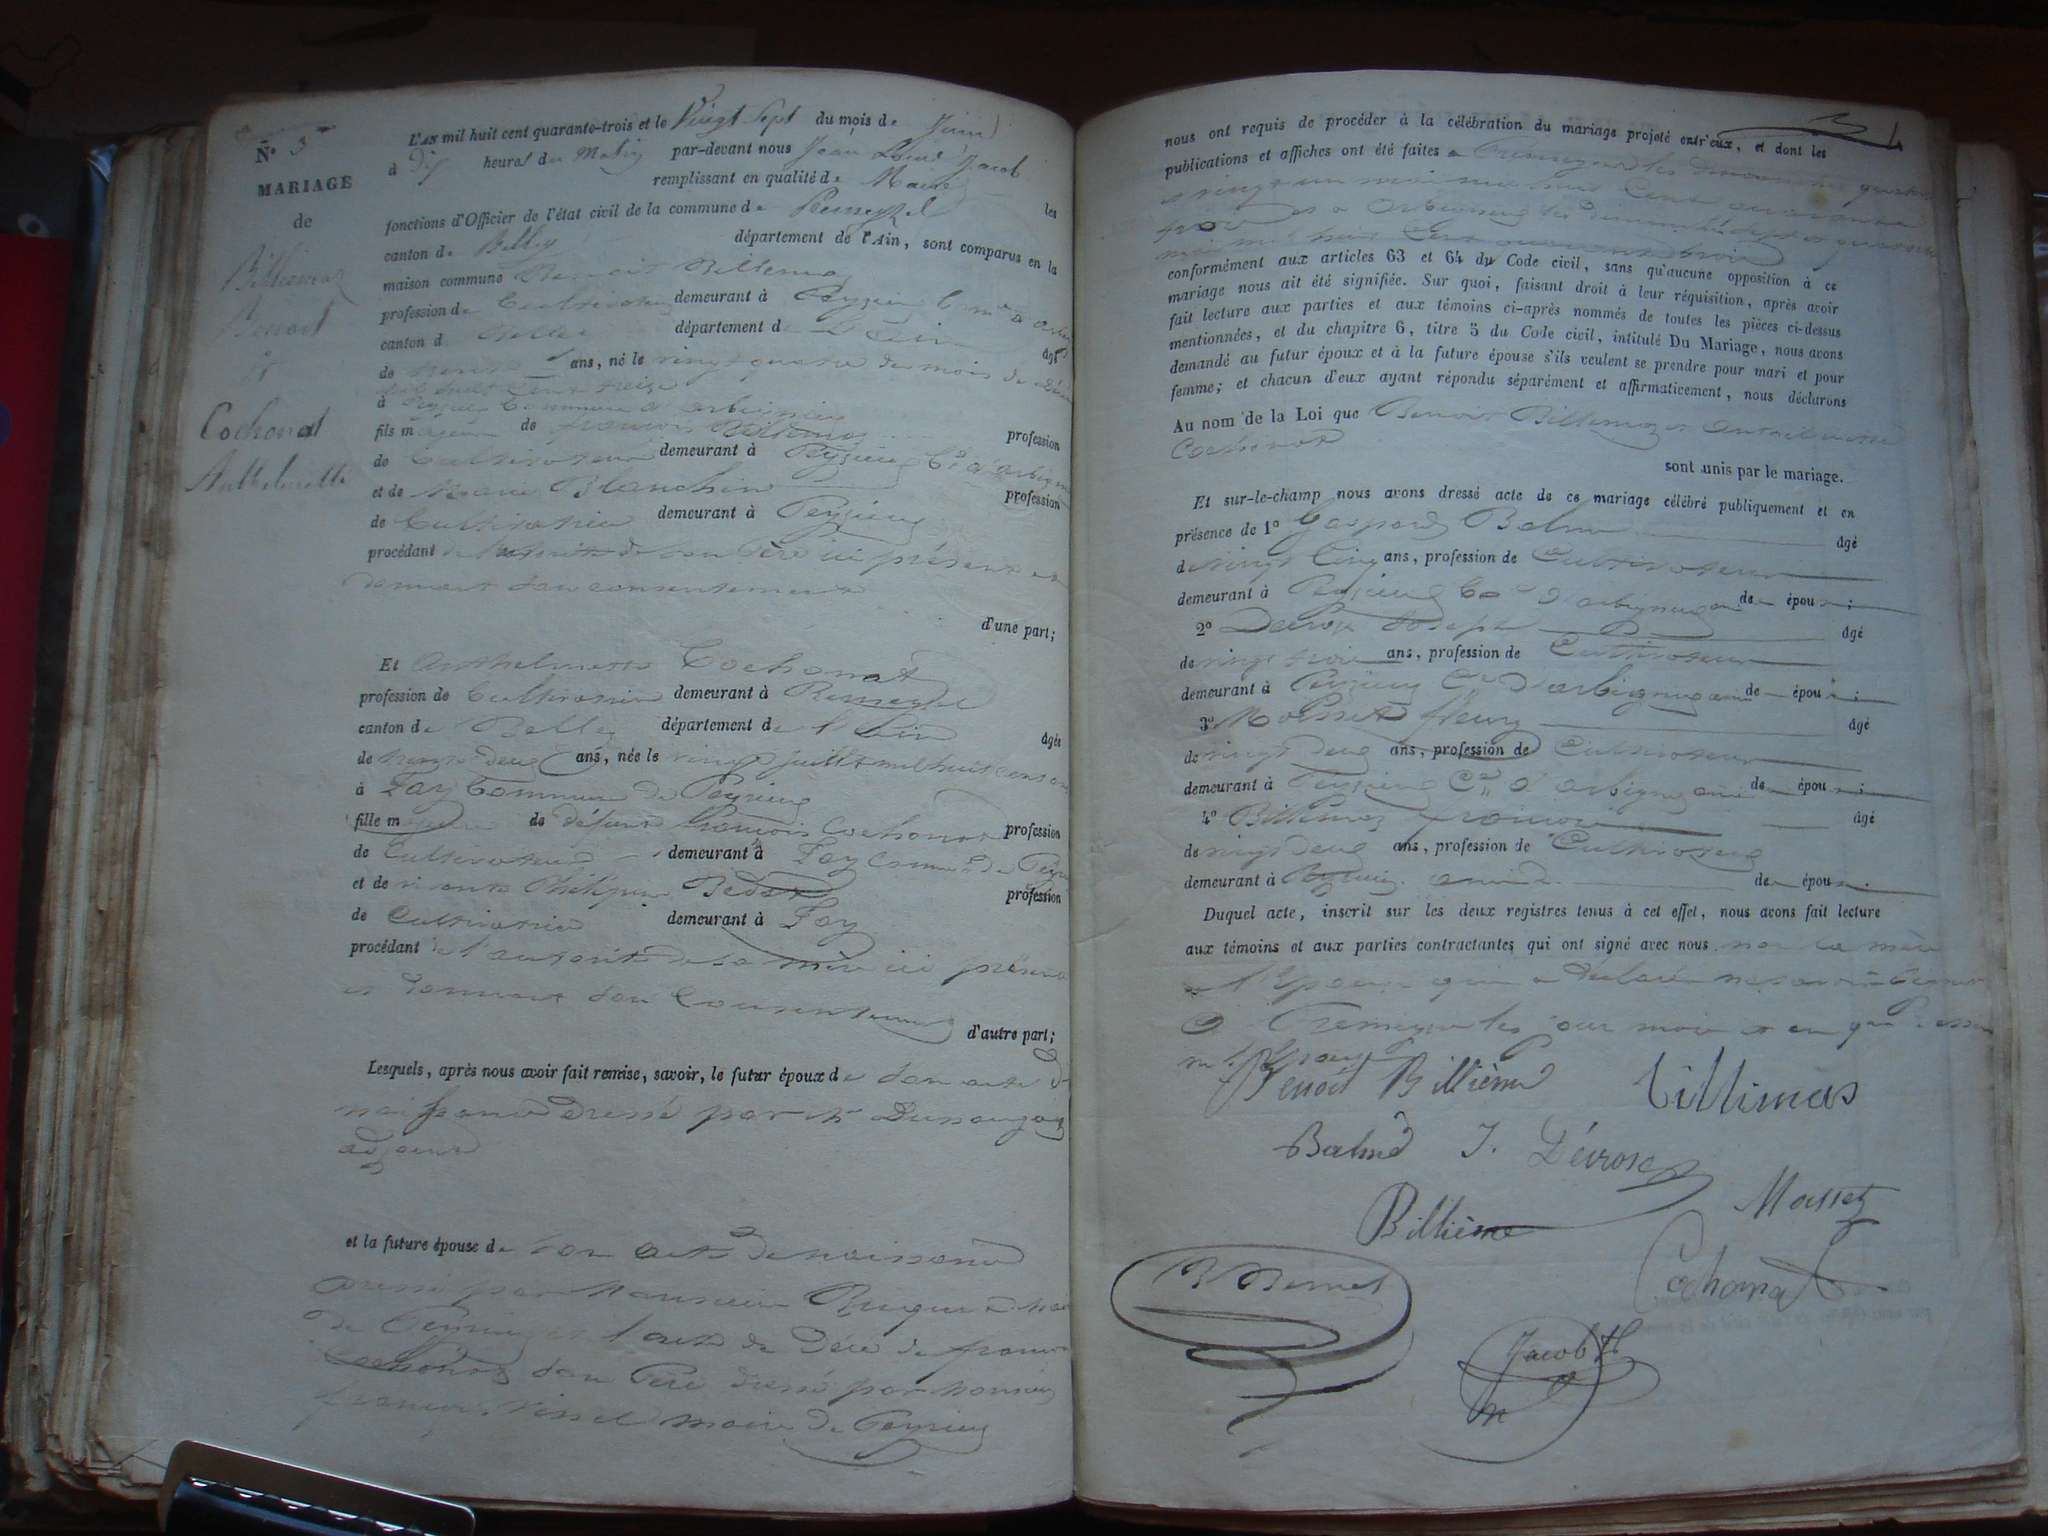 N° 3
MARIAGE
de
Billiemaz
Benoit
et
Cochonat
Anthelmette
L'AN mil huit cent quarante-trois et le Vingt Sept du mois de Juin
à Dix heures du Matin par-devant nous Jean Louis Jacob
remplissant en qualité de Maire les
fonctions d'Officier de l'état civil de la commune de
canton de Belley département de l'Ain, sont comparus en la
maison commune Benoit Billiemaz
profession de Cultivateur demeurant à Peyzieu
canton de Belley département de L'Ain âgé
de ans, né le vingt quatre du mois de
mil huit cent treize
à Peyzieu Commune d'arbignieu
fils majeur de françois Billiemaz profession
de Cultivateur demeurant à Peyzieu
et de Marie Blanchin profession
de Cultivatrice demeurant à Peyzieu
procédant de l'autorité de son Père ici présent et
donnant son consentement
d'une part;
Et Anthelmette Cochonat
profession de Cultivatrice demeurant à
canton de Belley département de l'Ain âgée
de trente deux ans, née le vingt juillet mil huit cent onze
à Fay Commune de Peyrieu
fille majeure de défunt françois Cochonat profession
de Cultivateur demeurant à Fay Commune de
et de vivante Philippine profession
de Cultivatrice demeurant à Fay
procédant de l'autorité de sa mère ici présente
et donnant son Consentement
d'autre part;
Lesquels, après nous avoir fait remise, savoir, le futur époux de son acte de
naissance dressé par Mr
adjoint
et la future épouse de son acte de naissance
dressé par Monsieur
de Peyrieu et l'acte de décè de françois
Cochonat son Père dressé par Monsieur
françois maire de Peyrieu
nous ont requis de procéder à la célébration du mariage projeté entr'eux, et dont les
publications et affiches ont été faites à les dimanche quatorze
et vingt un mai mil huit Cent quarante
trois et à arbignieu les dimanche sept et quatorze
mai mil huit Cent quarante trois
conformément aux articles 63 et 64 du Code civil, sans qu'aucune opposition à ce
mariage nous ait été signifiée. Sur quoi, faisant droit à leur réquisition, après avoir
fait lecture aux parties et aux témoins ci-après nommés de toutes les pièces ci-dessus
mentionnées, et du chapitre 6, titre 5 du Code civil, intitulé Du Mariage, nous avons
demandé au futur époux et à la future épouse s'ils veulent se prendre pour mari et pour
femme; et chacun d'eux ayant répondu séparément et affirmaticement, nous déclarons
Au nom de la Loi que Benoit Billiemaz et Anthelmette
Cochonat
sont unis par le mariage.
Et sur-le-champ nous avons dressé acte de ce mariage célébré publiquement et en
présence de 1° Gaspard Balme âgé
de vingt Cinq ans, profession de Cultivateur
demeurant à Peyzieu Cne d'arbignieu ami de époux;
2° Devose Joseph âgé
de vingt trois ans, profession de Cultivateur
demeurant à Peyzieu Cne d'arbignieu ami de époux;
3° fleury âgé
de vingt deux ans, profession de Cultivateur
demeurant à Peyzieu Cne d'arbignieu ami de époux;
4° Billiemaz françois âgé
de vingt deux ans, profession de Cultivateur
demeurant à Peyzieu ami de de époux;
Duquel acte, inscrit sur les deux registres tenus à cet effet, nous avons fait lecture
aux témoins et aux parties contractantes qui ont signé avec nous non la mère
de l'Epouse qui a déclaré ne savoir
à les jour mois et an que dessus
Benoit Billième Billimas
Balme J. Dévose
Billième Masset
Cochonat
Jacob